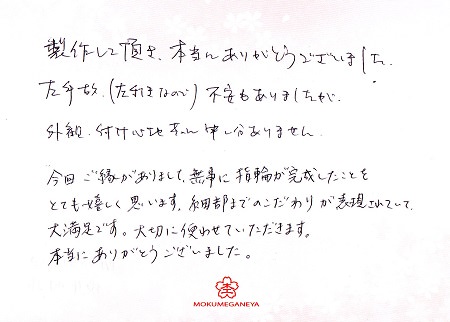 製作して頂き、本当にありがとうございました。
左手故、(左利きなので)不安もありましたが、
外観、付け心地共に申し分ありません。
今回ご縁がありまして、無事に指輪が完成したことを
とても嬉しく思います。細部までのこだわりが表現されていて、
大満足です。大切に使わせていただきます。
本当にありがとうございました。
MOKUMEGANEYA